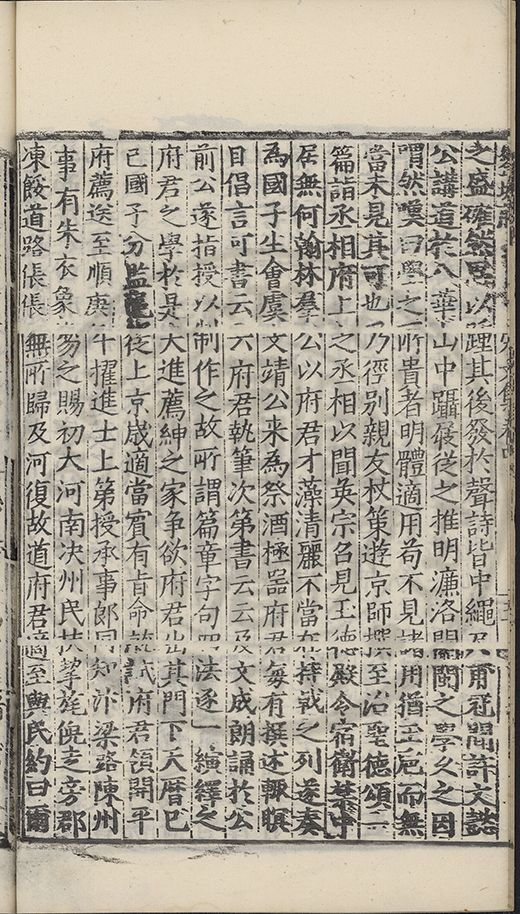 之盛確然思以踵其後發於聲詩皆中繩尺甫冠聞許文懿
公講道於八華山中躡屐從之推明濂洛關閩之學久之因
喟然嘆曰學之所貴者明體適用苟不見諸用猶玉巵而無
當未見其可也乃徑別親友杖策遊京師撰至治聖德頌二
篇詣丞相府上之丞相以聞英宗召見玉德殿令宿衛禁中
居無何翰林羣公以府君才藻清麗不當在持戟之列遂奏
為國子生會虞文靖公来為祭酒極器府君每有撰述輒瞑
目倡言可書云云府君執筆次第書云云及文成朗誦於公
前公遂指授以制作之故所謂篇章字句四法逐一演繹之
府君之學於是大進薦紳之家爭欲府君出其門下天曆己
巳國子分監從上京歲適當賓有旨命就試府君領開平
府薦送至順庚午擢進士上第授承事郎同知汴梁路陳州
事有朱衣象笏之賜初大河南决州民扶挈旄倪走旁郡
凍餒道路倀倀無所歸及河復故道府君適至與民約曰爾